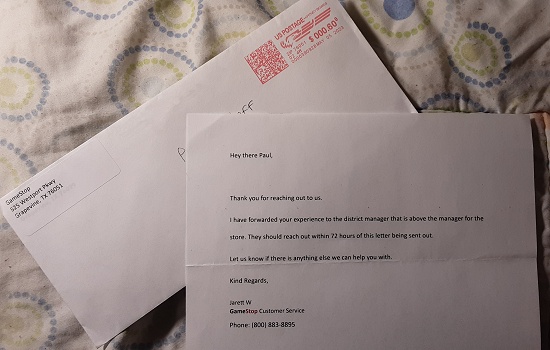 US POSTAGE
$ 000.60⁰
GameStop
525 Westport Pkwy
Grapevine, TX 76051
Hey there Paul,
Thank you for reaching out to us.
I have forwarded your experience to the district manager that is above the manager for the
store. They should reach out within 72 hours of this letter being sent out.
Let us know if there is anything else we can help you with.
Kind Regards,
Jarett W
GameStop Customer Service
Phone: (800) 883-8895